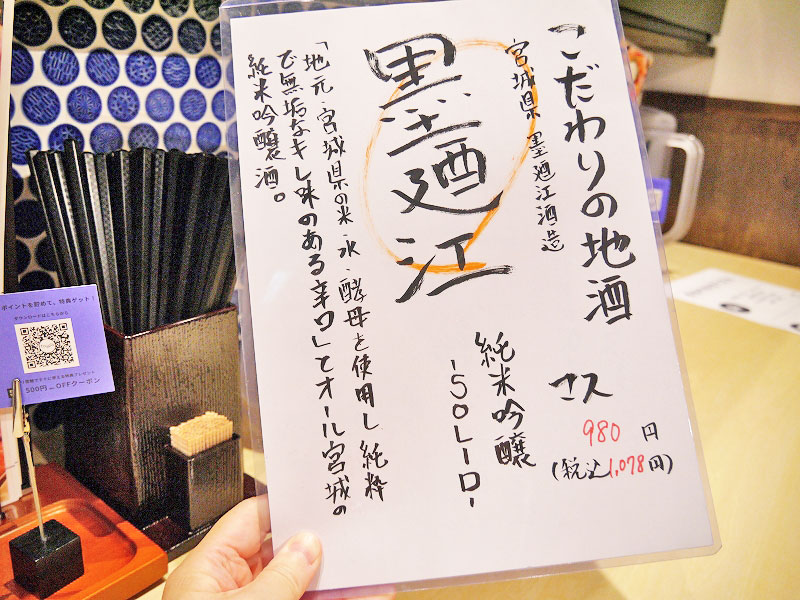 こだわりの地酒
宮城県 墨廼江酒造
墨廼江
純米吟醸
-SOLEIL-
グラス
980円
(税込1,078円)
「地元・宮城県の米・水・酵母を使用し純粋
で無垢なキレ味のある辛口」とオール宮城の
純米吟醸酒。
ポイントを貯めて、特典ゲット!
ダウンロードはこちらから
500円OFFクーポン